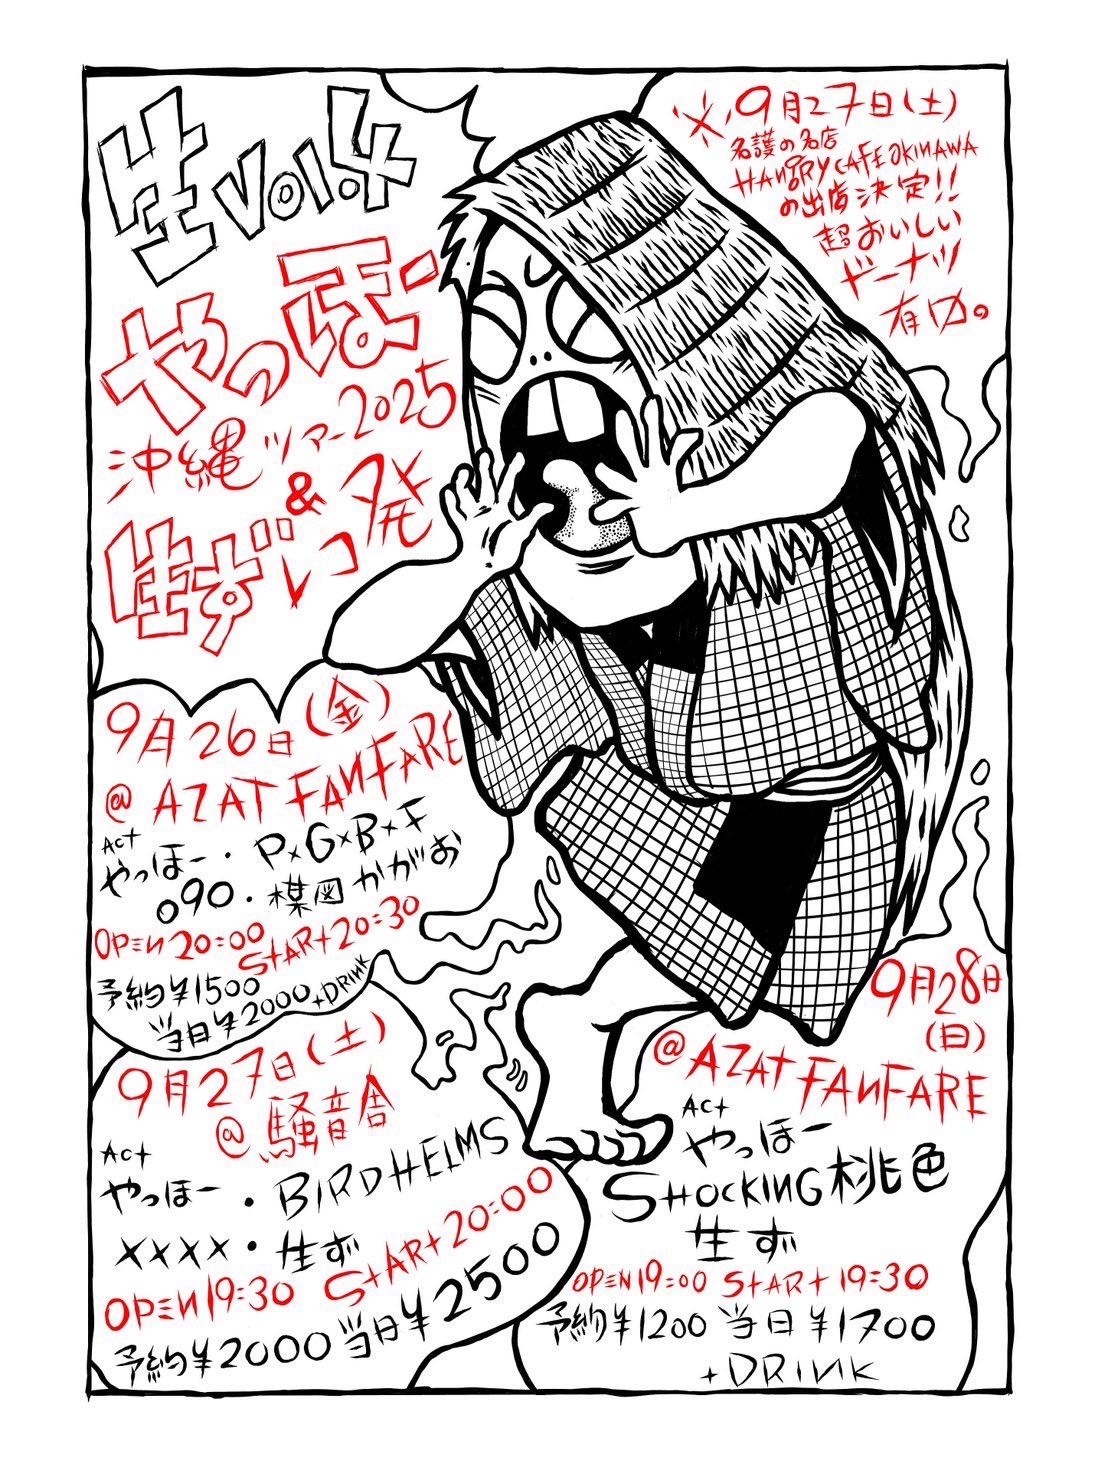 生 vol.4
やっほー
沖縄ツアー2025
&
生ずい発
※9月27日(土)
名護の名店
HANGRY CAFE OKINAWA
の出店決定!!
超おいしい
ドーナツ
有り。
9月26日(金)
@ AZAT FANFARE
Act
やっほー・P×G×B×F
090・楳図かがお
OPEN 20:00 START 20:30
予約¥1500
当日¥2000 +DRINK
9月27日(土)
@ 騒音舎
Act
やっほー・BIRDHELMS
××××・生ず
OPEN 19:30 START 20:00
予約¥2000 当日¥2500
9月28日
(日)
@ AZAT FANFARE
Act
やっほー
SHOCKING桃色
生ず
OPEN 19:00 START 19:30
予約¥1200 当日¥1700
+DRINK